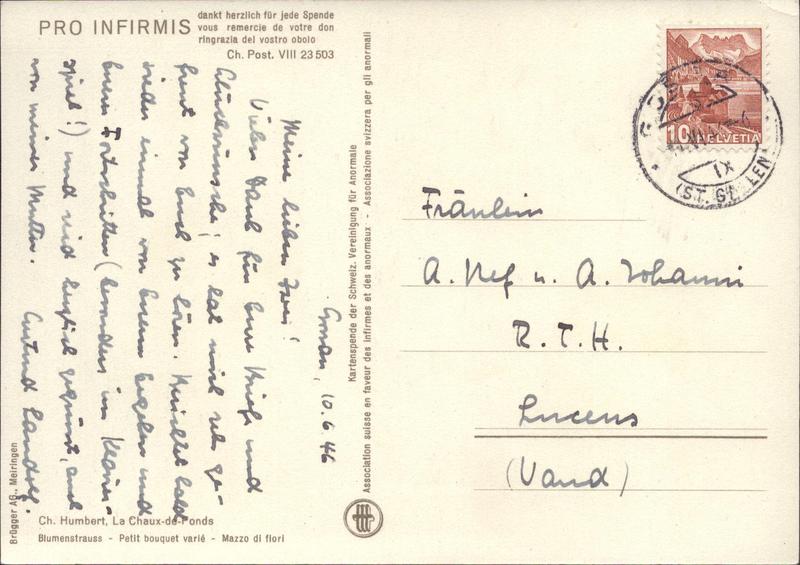 PRO INFIRMIS
dankt herzlich für jede Spende
vous remercie de votre don
ringrazia del vostro obolo
Ch. Post. VIII 23 503
Gossau, 10.6.46
Meine lieben Zwei!
Vielen Dank für Eure Briefe und
Glückwünsche; es hat mich sehr ge-
freut von Euch zu hören. Berichtet bald
wieder einmal von Eurem Ergehen und
Euren Fortschritten (besonders im Klavier-
spiel!) und seid herzlich gegrüsst, auch
von meiner Mutter.
Gertrud Landolf.
Kartenspende der Schweiz. Vereinigung für Anormale
Association suisse en faveur des infirmes et des anormaux - Associazione svizzera per gli anormali
Fräulein
A. Nef u. A. Johanni
R. T. H.
Lucens
(Vaud)
10 HELVETIA
IX
(ST. GALLEN)
Brügger AG., Meiringen
Ch. Humbert, La Chaux-de-Fonds
Blumenstrauss - Petit bouquet varié - Mazzo di fiori